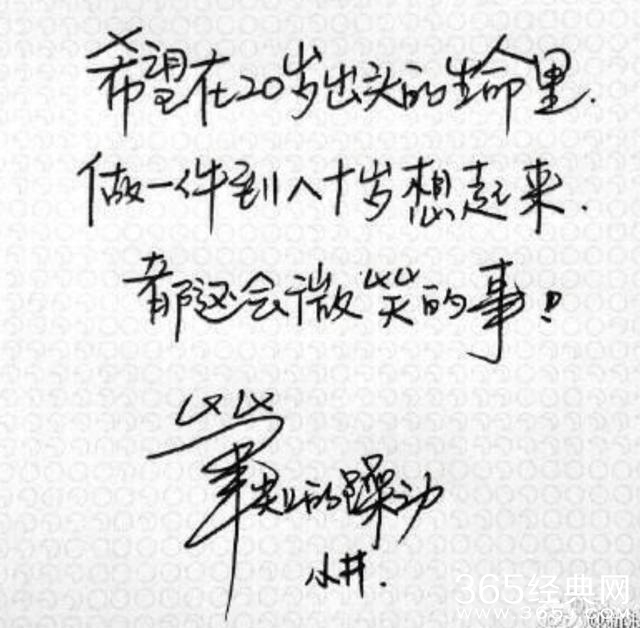 希望在20岁出头的生命里.
做一件到八十岁想起来.
都还会微笑的事!
笔尖上的躁动
小井.
365经典网
www.365